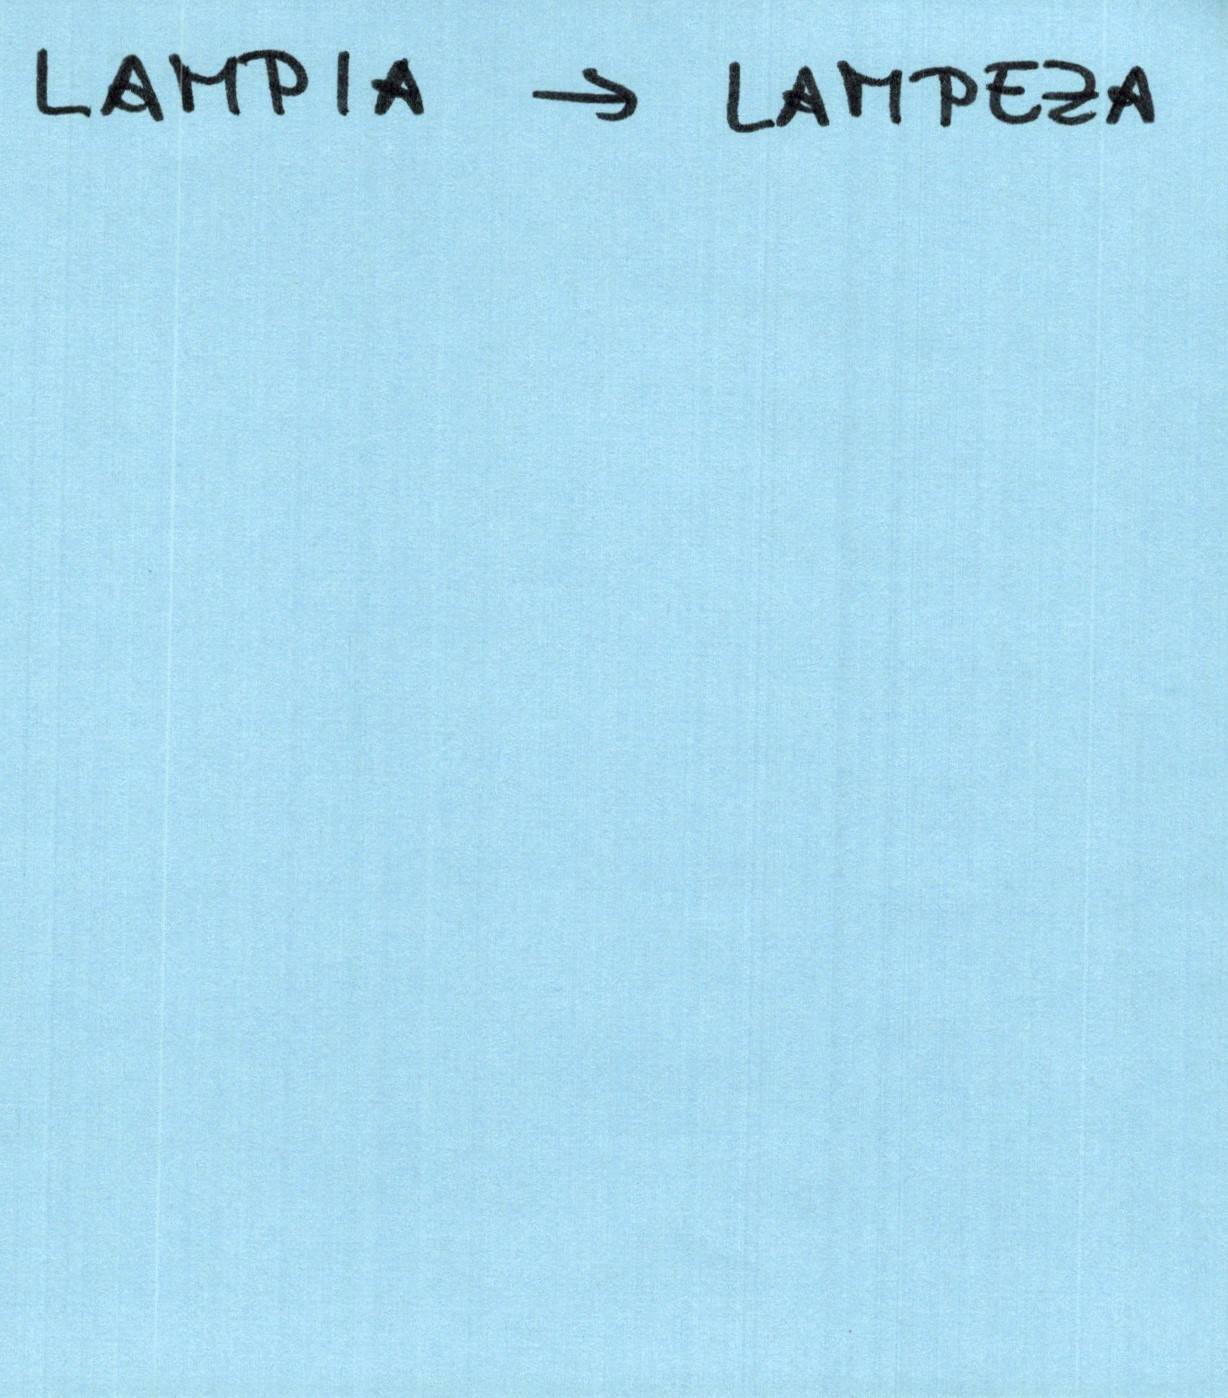 LAMPIA → LAMPEZA